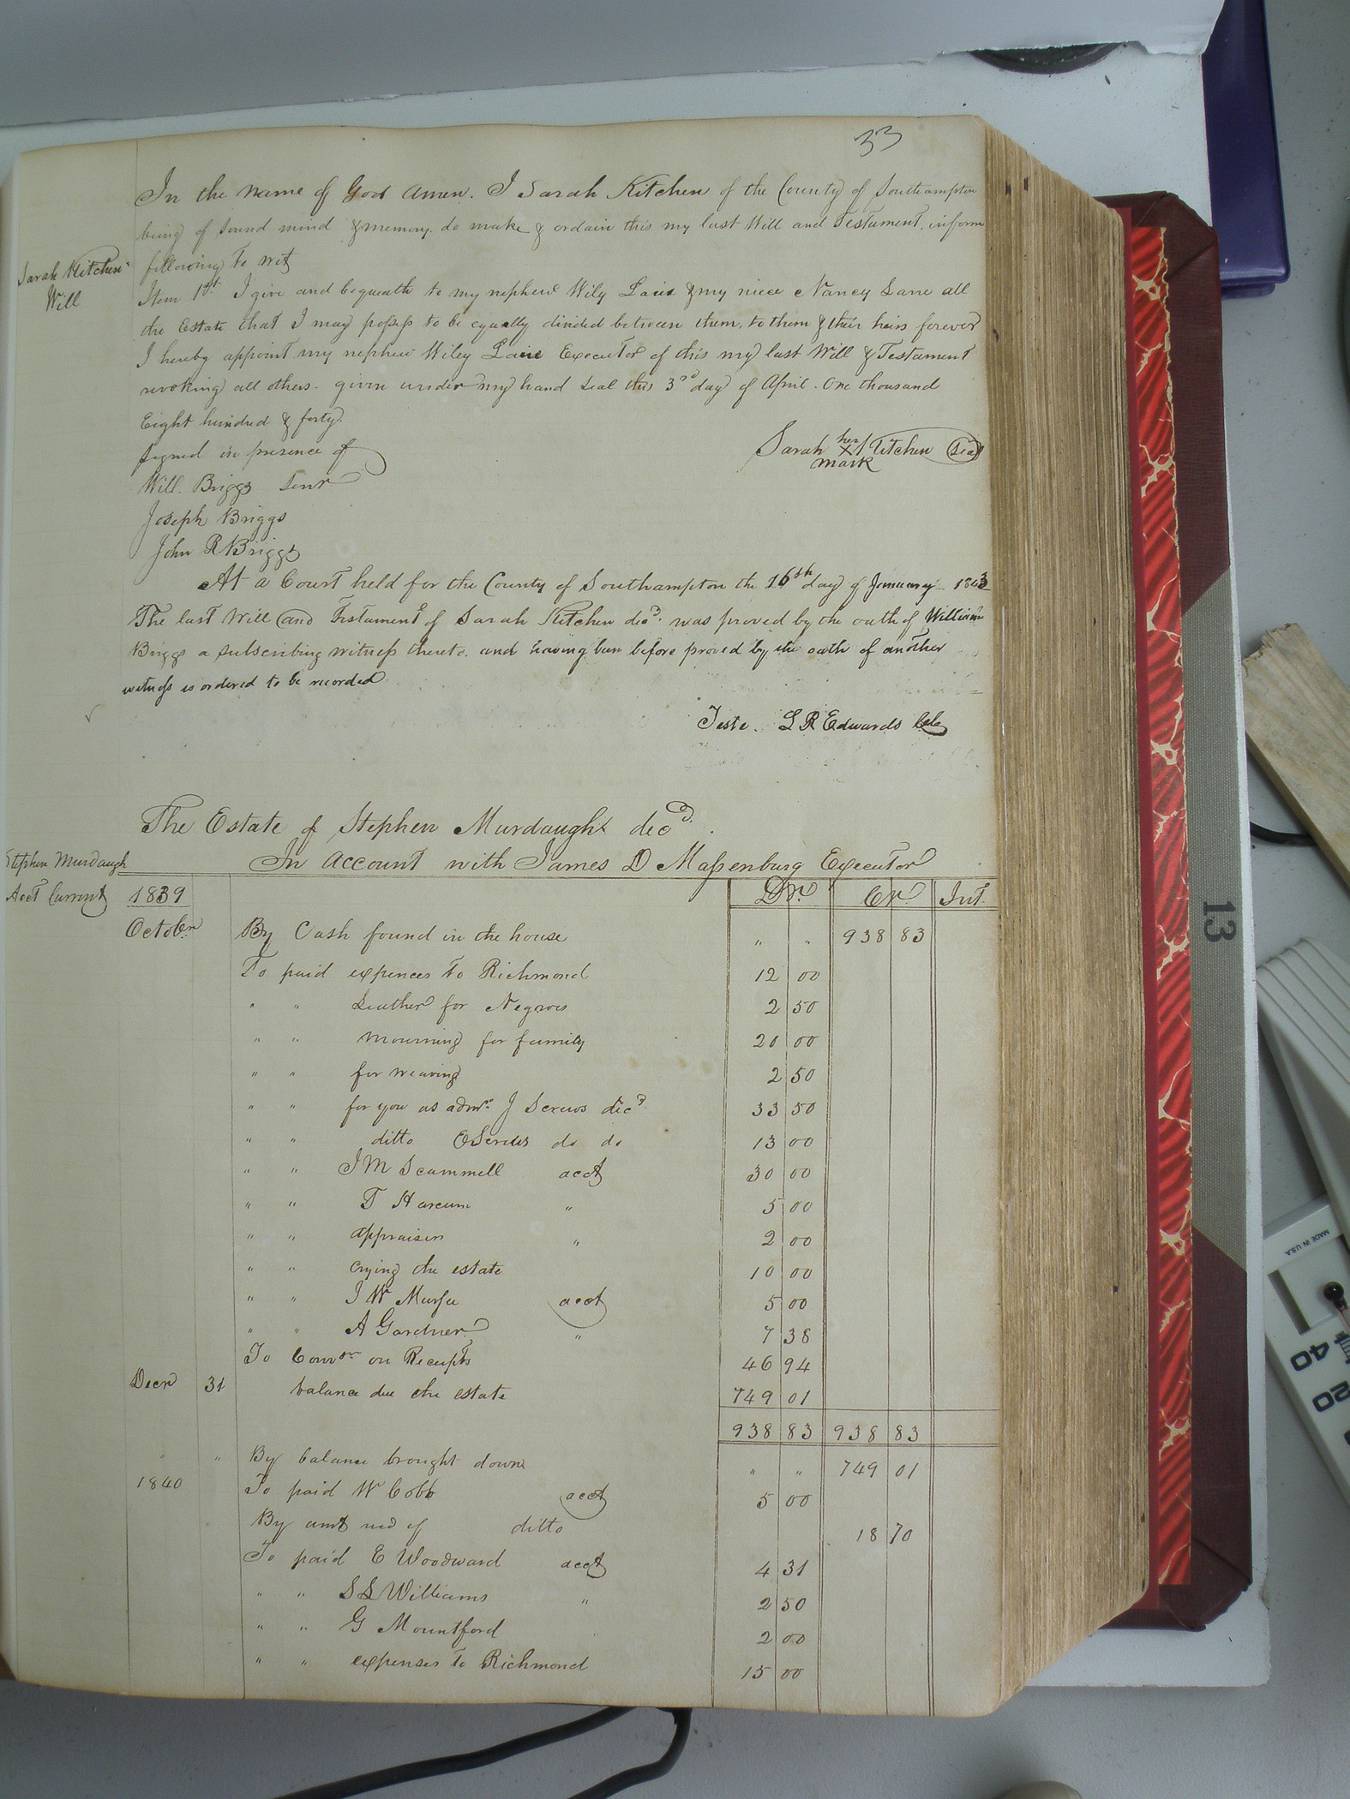 33
In the name of God amen. I Sarah Kitchen of the County of Southampton
being of sound mind & memory do make & ordain this my last Will and Testament in form
following to wit
Sarah Kitchen's
Will
Item 1st. I give and bequeath to my nephew Wily Lane & my niece Nancy Lane all
the Estate that I may possess to be equally divided between them, to them & their heirs forever
I hereby appoint my nephew Wiley Lane Executor of this my last Will & Testament
revoking all others. given under my hand seal this 3rd day of April. One thousand
Eight hundred & forty.
Signed in presence of
Sarah her X Kitchen Seal
mark
Will. Briggs Senr
Joseph Briggs
John R Briggs
At a Court held for the County of Southampton the 16th day of January 1843
The last Will and Testament of Sarah Kitchen decd. was proved by the oath of William
Briggs a subscribing witness thereto. and having been before proved by the oath of another
witness is ordered to be recorded
Teste. L R Edwards
The Estate of Stephen Murdaugh decd.
In Account with James D Massenburg Executor
Stephen Murdaugh
Acct Current
1839 Dr. Cr. Int.
October By Cash found in the house " " 938 83
To paid expences to Richmond 12 00
" " Leather for Negroes 2 50
" " mourning for family 20 00
" " for weaving 2 50
" " for you as admr. J decd 33 50
" " ditto do do 13 00
" " J M Scammell acct 30 00
" " T Harcum " 5 00
" " appraisers " 2 00
" " crying the estate 10 00
" " J W Murfee acct 5 00
" " A Gardner " 7 38
To Comsn on Receipts 46 94
Decr 31 balance due the estate 749 01
938 83 938 83
" " By balance brought down " " 749 01
1840 To paid W Cobb acct 5 00
By amt recd of ditto 18 70
To paid E Woodward acct 4 31
" " S L Williams " 2 50
" " G Mountford 2 00
" " expenses to Richmond 15 00
13
MADE IN U.S.A.
40
20